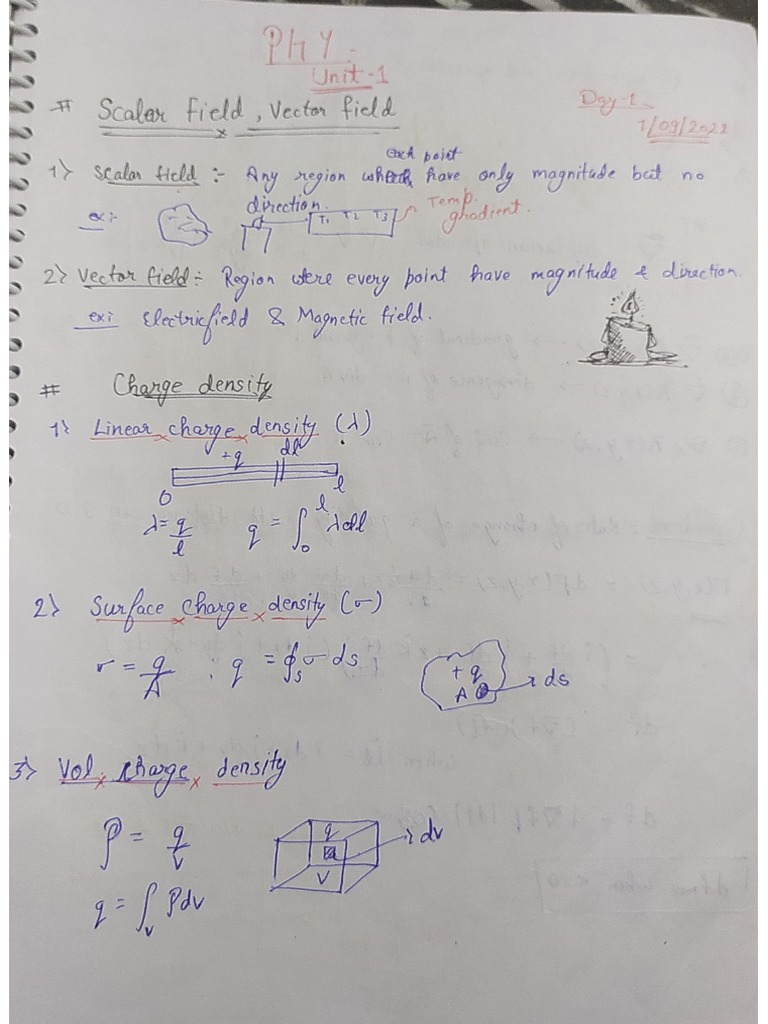 PHY
Unit-1
# Scalar field, Vector field
Day-1
1/09/2022
each point
1> Scalar field :- Any region where have only magnitude but no
direction.
ex:- T1 T2 T3 Temp. gradient.
2> Vector field :- Region were every point have magnitude & direction.
ex: Electricfield & Magnetic field.
# Charge density
1> Linear charge density (λ)
+q dl
O l
λ = q/l q = ∫₀ˡ λdl
2> Surface charge density (σ)
σ = q/A ; q = ∮ₛ σ ds
+q
A ds
3> Vol. charge density
ρ = q/V
q dv
V
q = ∫ᵥ ρdv